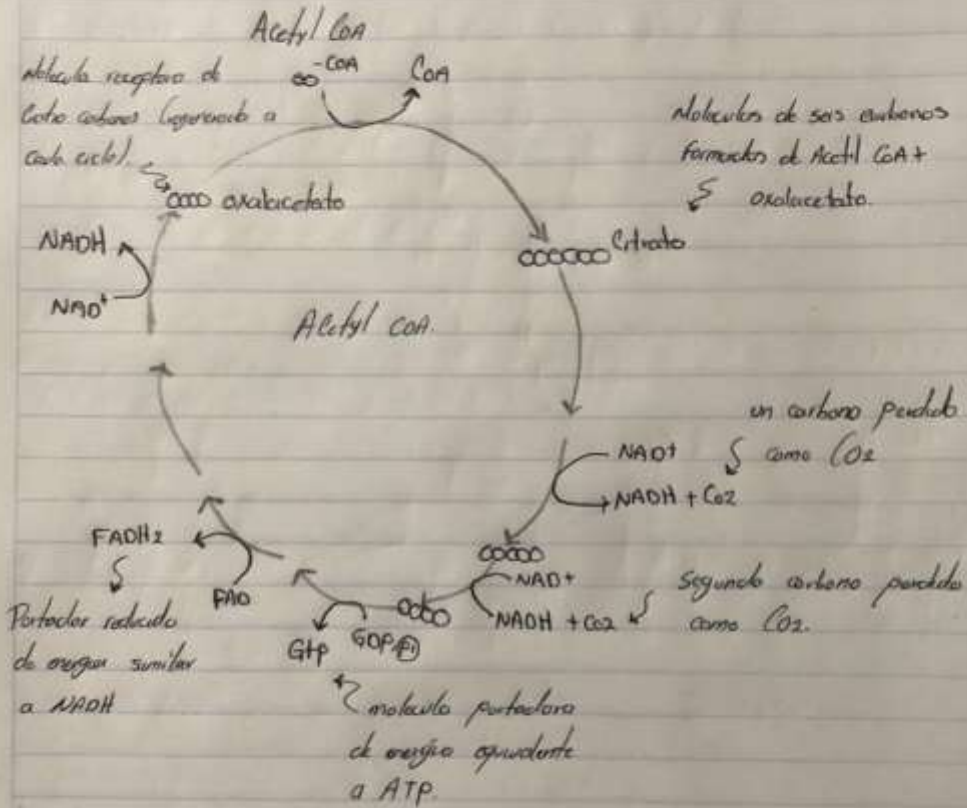 Acetyl CoA
Molecula receptora de
Cuatro carbonos (regenerado a
cada ciclo).
-COA
COA
oxalacetato
Moleculas de seis carbonos
formados de Acetil CoA +
oxalacetato.
Citrato
NADH
NAD+
Acetyl COA.
un carbono perdido
como CO2
NAD+
NADH + CO2
Segundo carbono perdido
como CO2.
NAD+
NADH + CO2
FADH2
FAD
Portador reducido
de energia similar
a NADH
Gtp
GDP Pi
molecula portadora
de energia equivalente
a ATP.